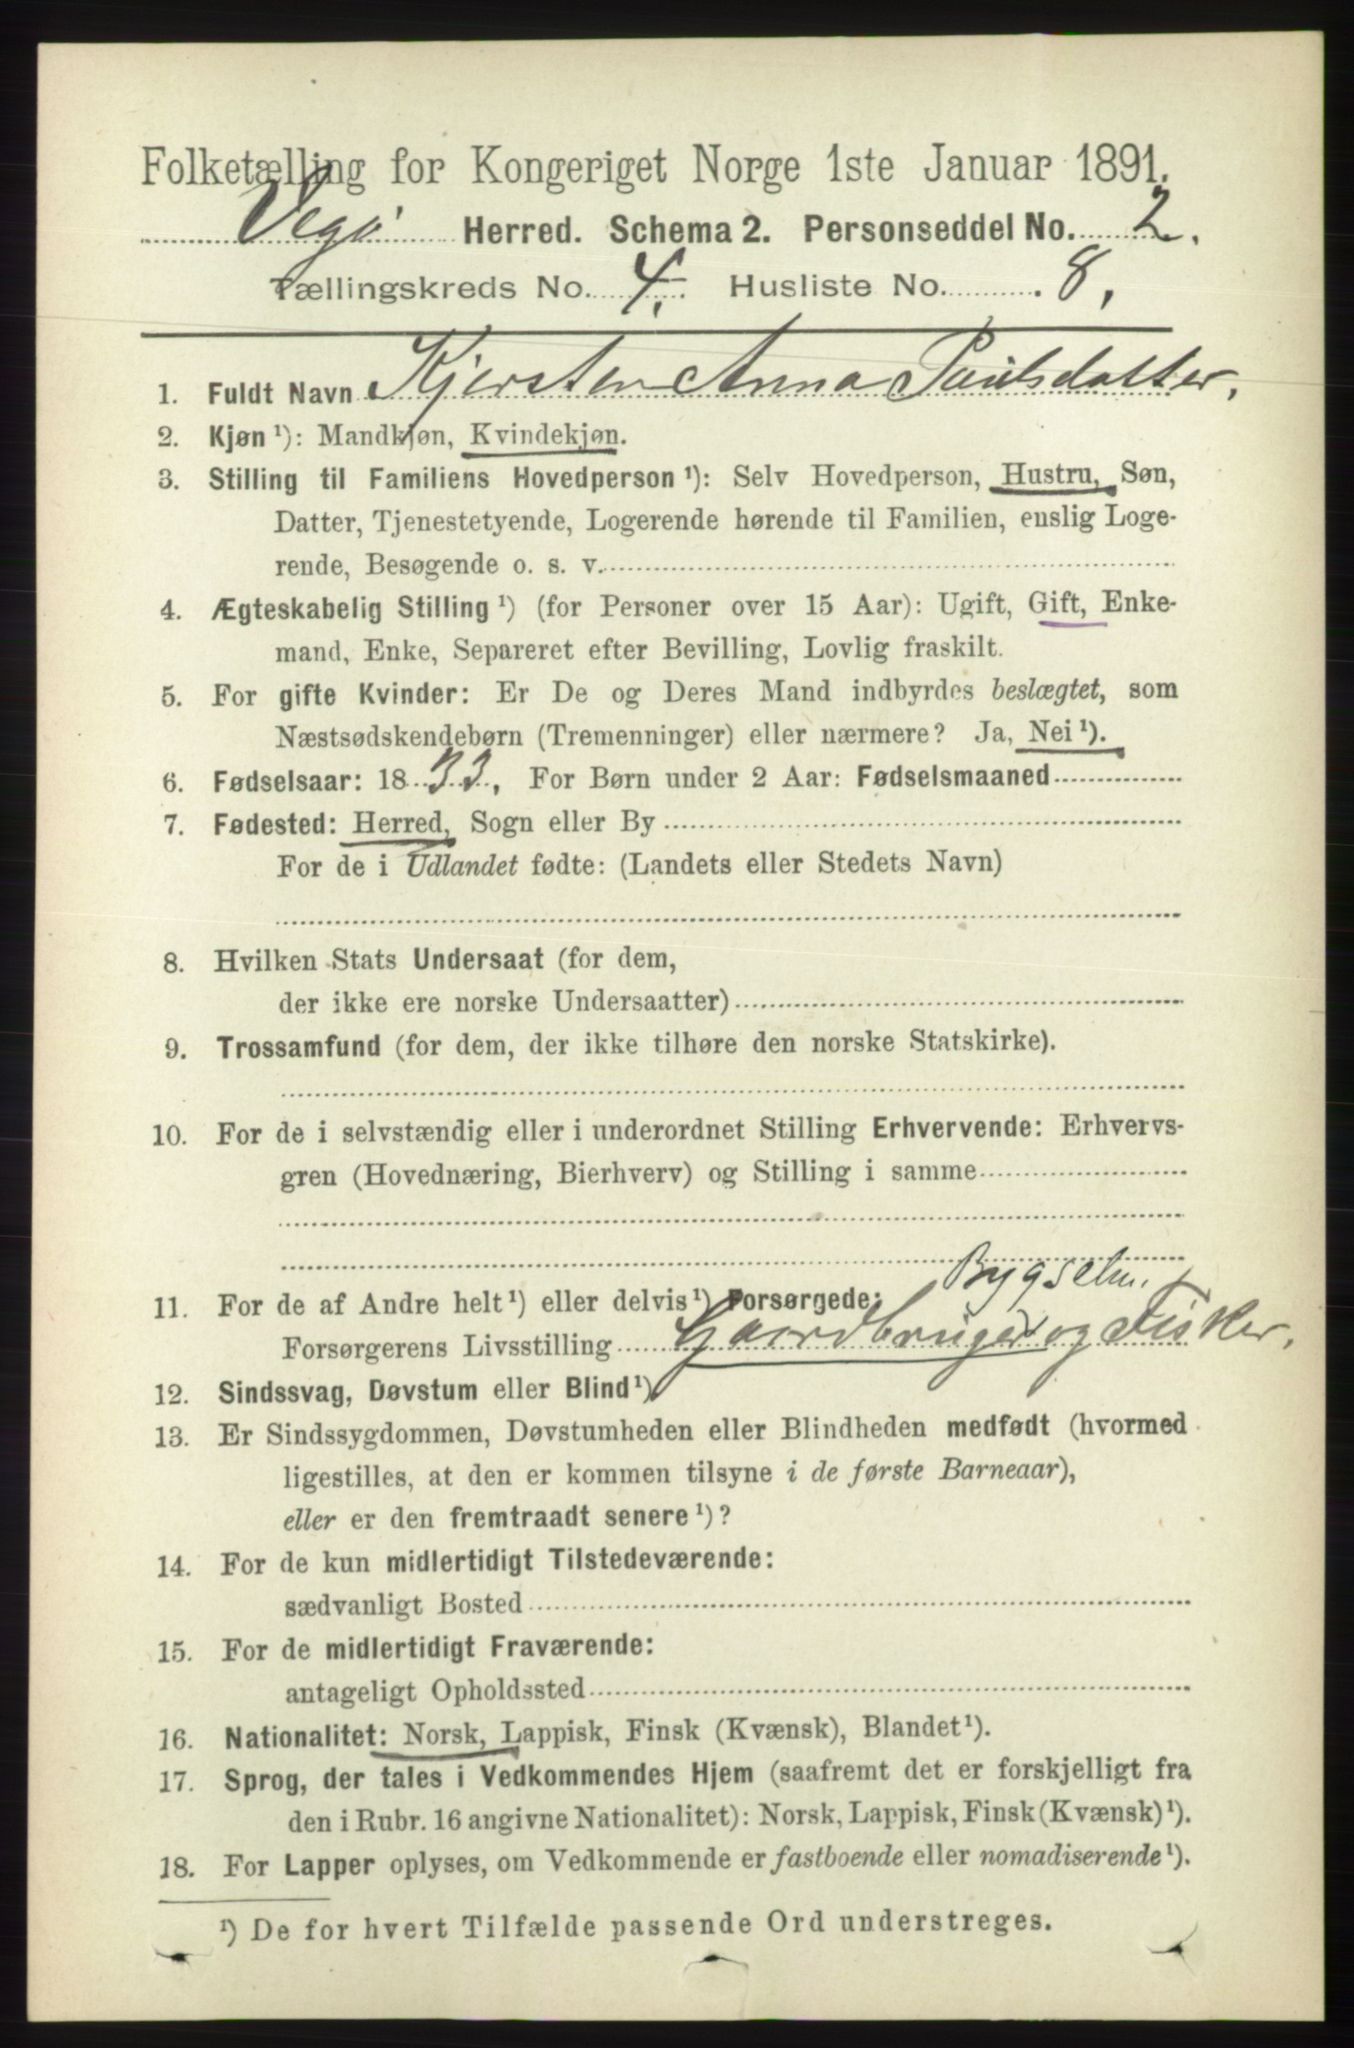 Folketælling for Kongeriget Norge 1ste Januar 1891.
Vegø Herred. Schema 2. Personseddel No. 2.
Tællingskreds No. 4. Husliste No. 8.
1. Fuldt Navn Kjersten Anna Paulsdatter,
2. Kjøn ¹): Mandkjøn, Kvindekjøn.
3. Stilling til Familiens Hovedperson ¹): Selv Hovedperson, Hustru, Søn,
Datter, Tjenestetyende, Logerende hørende til Familien, enslig Loge-
rende, Besøgende o. s. v.
4. Ægteskabelig Stilling ¹) (for Personer over 15 Aar): Ugift, Gift, Enke-
mand, Enke, Separeret efter Bevilling, Lovlig fraskilt.
5. For gifte Kvinder: Er De og Deres Mand indbyrdes beslægtet, som
Næstsødskendebørn (Tremenninger) eller nærmere? Ja, Nei ¹).
6. Fødselsaar: 1833. For Børn under 2 Aar: Fødselsmaaned
7. Fødested: Herred, Sogn eller By
For de i Udlandet fødte: (Landets eller Stedets Navn)
8. Hvilken Stats Undersaat (for dem,
der ikke ere norske Undersaatter)
9. Trossamfund (for dem, der ikke tilhøre den norske Statskirke).
10. For de i selvstændig eller i underordnet Stilling Erhvervende: Erhvervs-
gren (Hovednæring, Bierhverv) og Stilling i samme
Bygselm.
11. For de af Andre helt ¹) eller delvis ¹) Forsørgede:
Forsørgerens Livsstilling Gaardbruger og Fisker,
12. Sindssvag, Døvstum eller Blind ¹)
13. Er Sindssygdommen, Døvstumheden eller Blindheden medfødt (hvormed
ligestilles, at den er kommen tilsyne i de første Barneaar),
eller er den fremtraadt senere ¹)?
14. For de kun midlertidigt Tilstedeværende:
sædvanligt Bosted
15. For de midlertidigt Fraværende:
antageligt Opholdssted
16. Nationalitet: Norsk, Lappisk, Finsk (Kvænsk), Blandet ¹).
17. Sprog, der tales i Vedkommendes Hjem (saafremt det er forskjelligt fra
den i Rubr. 16 angivne Nationalitet): Norsk, Lappisk, Finsk (Kvænsk) ¹).
18. For Lapper oplyses, om Vedkommende er fastboende eller nomadiserende ¹).
¹) De for hvert Tilfælde passende Ord understreges.